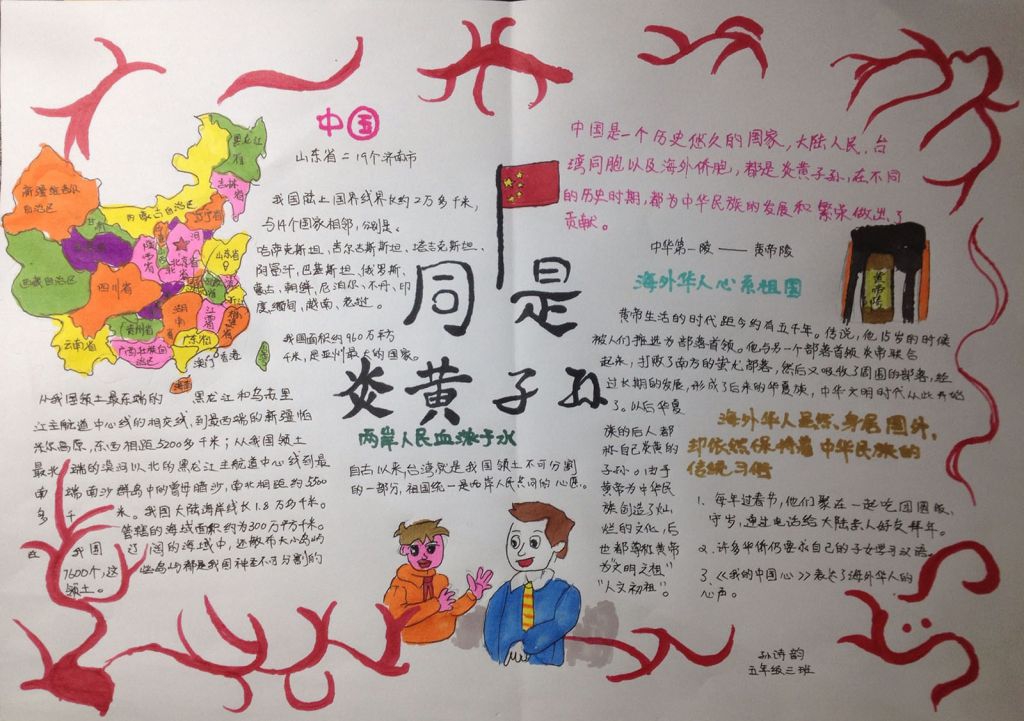 中国
山东省=19个济南市
我国陆上国界线界长约2万多千米，
与14个国家相邻，分别是、
哈萨克斯坦、吉尔吉斯斯坦、塔吉克斯坦、
阿富汗、巴基斯坦、俄罗斯、
蒙古、朝鲜、尼泊尔、不丹、印
度、缅甸，越南，老挝。
我国面积约960万平方
千米，是亚州最大的国家。
黑龙江
省
吉林
省
辽宁省
新疆维吾尔
自治区
内蒙古自治区
甘肃
西藏自治区
四川省
陕西省
北京
山东省
湖南
江西省
贵州省
云南省
广西壮族自
治区
广东省
澳门
香港
从我国领土最东端的 黑龙江和乌苏里
江主航道中心线的相交线，到最西端的新疆帕
米尔高原，东西相距5200多千米；从我国领土
最北 端的漠河以北的黑龙江主航道中心线到最
南 端南沙群岛中的曾母暗沙，南北相距约5500
多 千 米。我国大陆海岸线长1.8万多千米。
管辖的海域面积约为300万平方千米。
在 我国 辽阔的海域中，还散布大小岛屿
7600个，这 些岛屿都是我国神圣不可分割的
领土。
同是
炎黄子孙
两岸人民血浓于水
自古以来台湾就是我国领土不可分割
的一部分，祖国统一是两岸人民共同的心愿。
中国是一个历史悠久的国家，大陆人民、台
湾同胞以及海外侨胞，都是炎黄子孙，在不同
的历史时期，都为中华民族的发展和繁荣做出了
贡献。
中华第一陵——黄帝陵
黄帝陵
海外华人心系祖国
黄帝生活的时代距今约有五千年。传说，他15岁的时候
被人们推选为部落首领。他与另一个部落首领炎帝联合
起来，打败了南方的蚩尤部落，然后又吸收了周围的部落，经
过长期的发展，形成了后来的华夏族，中华文明时代从此开始
了。以后华夏
族的后人都
称自己炎黄的
子孙。由于
黄帝为中华民
族创造了灿
烂的文化，后
世都尊称黄帝
为“文明之祖”
“人文初祖”。
海外华人虽然、身居国外，
却依然保持着中华民族的
传统习俗
1、每年过春节，他们聚在一起吃团圆饭、
守岁，通过电话给大陆亲人好友拜年。
2、许多华侨仍要求自己的子女学习汉语。
3、《我的中国心》表达了海外华人的
心声。
孙诗韵
五年级三班